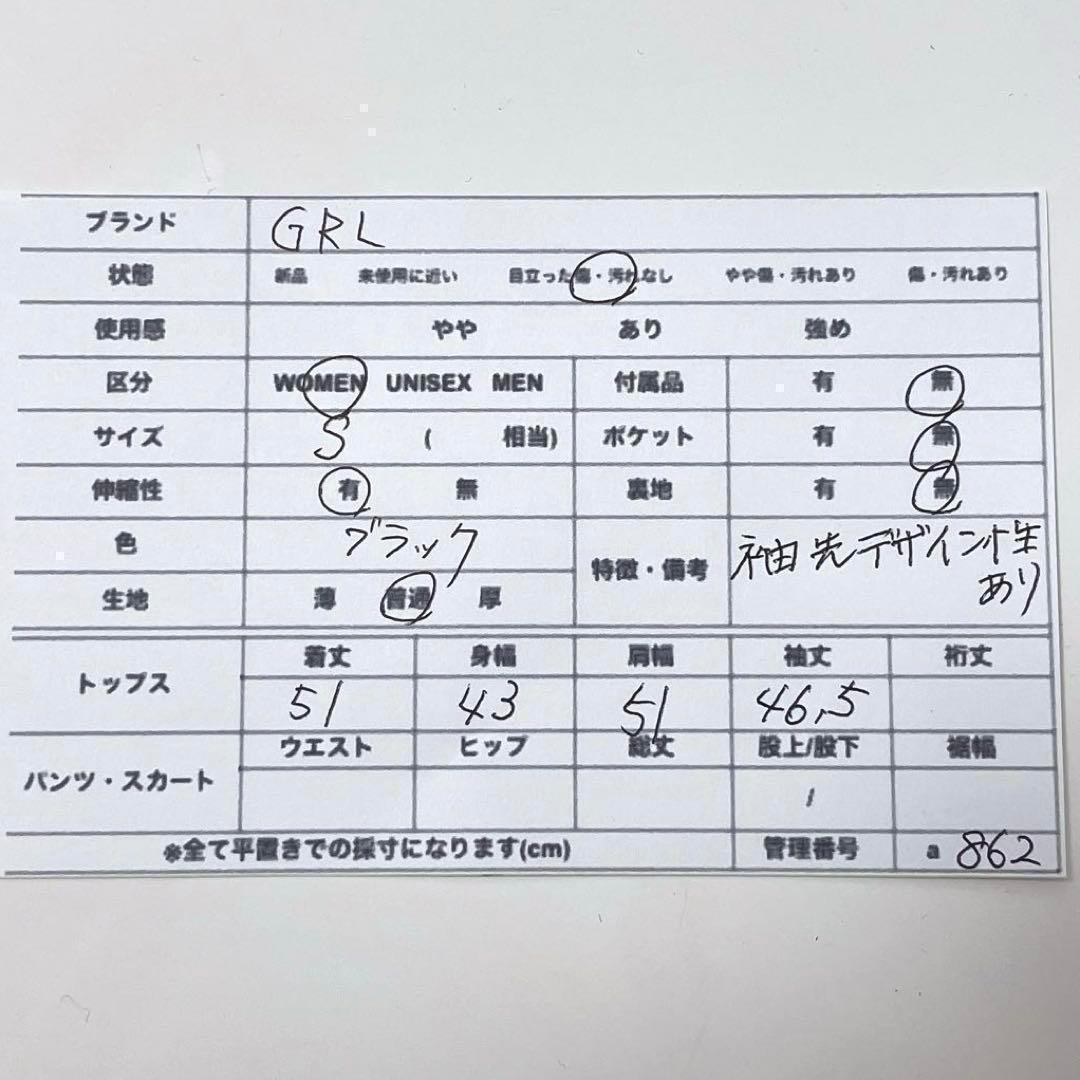 ブランド GRL
状態 新品 未使用に近い 目立った傷・汚れなし やや傷・汚れあり 傷・汚れあり
使用感 やや あり 強め
区分 WOMEN UNISEX MEN 付属品 有 無
サイズ S ( 相当) ポケット 有 無
伸縮性 有 無 裏地 有 無
色 ブラック 特徴・備考 袖先デザイン性
あり
生地 薄 普通 厚
トップス 着丈 身幅 肩幅 袖丈 裄丈
51 43 51 46,5
パンツ・スカート ウエスト ヒップ 総丈 股上/股下 裾幅
/
※全て平置きでの採寸になります(cm) 管理番号 a 862